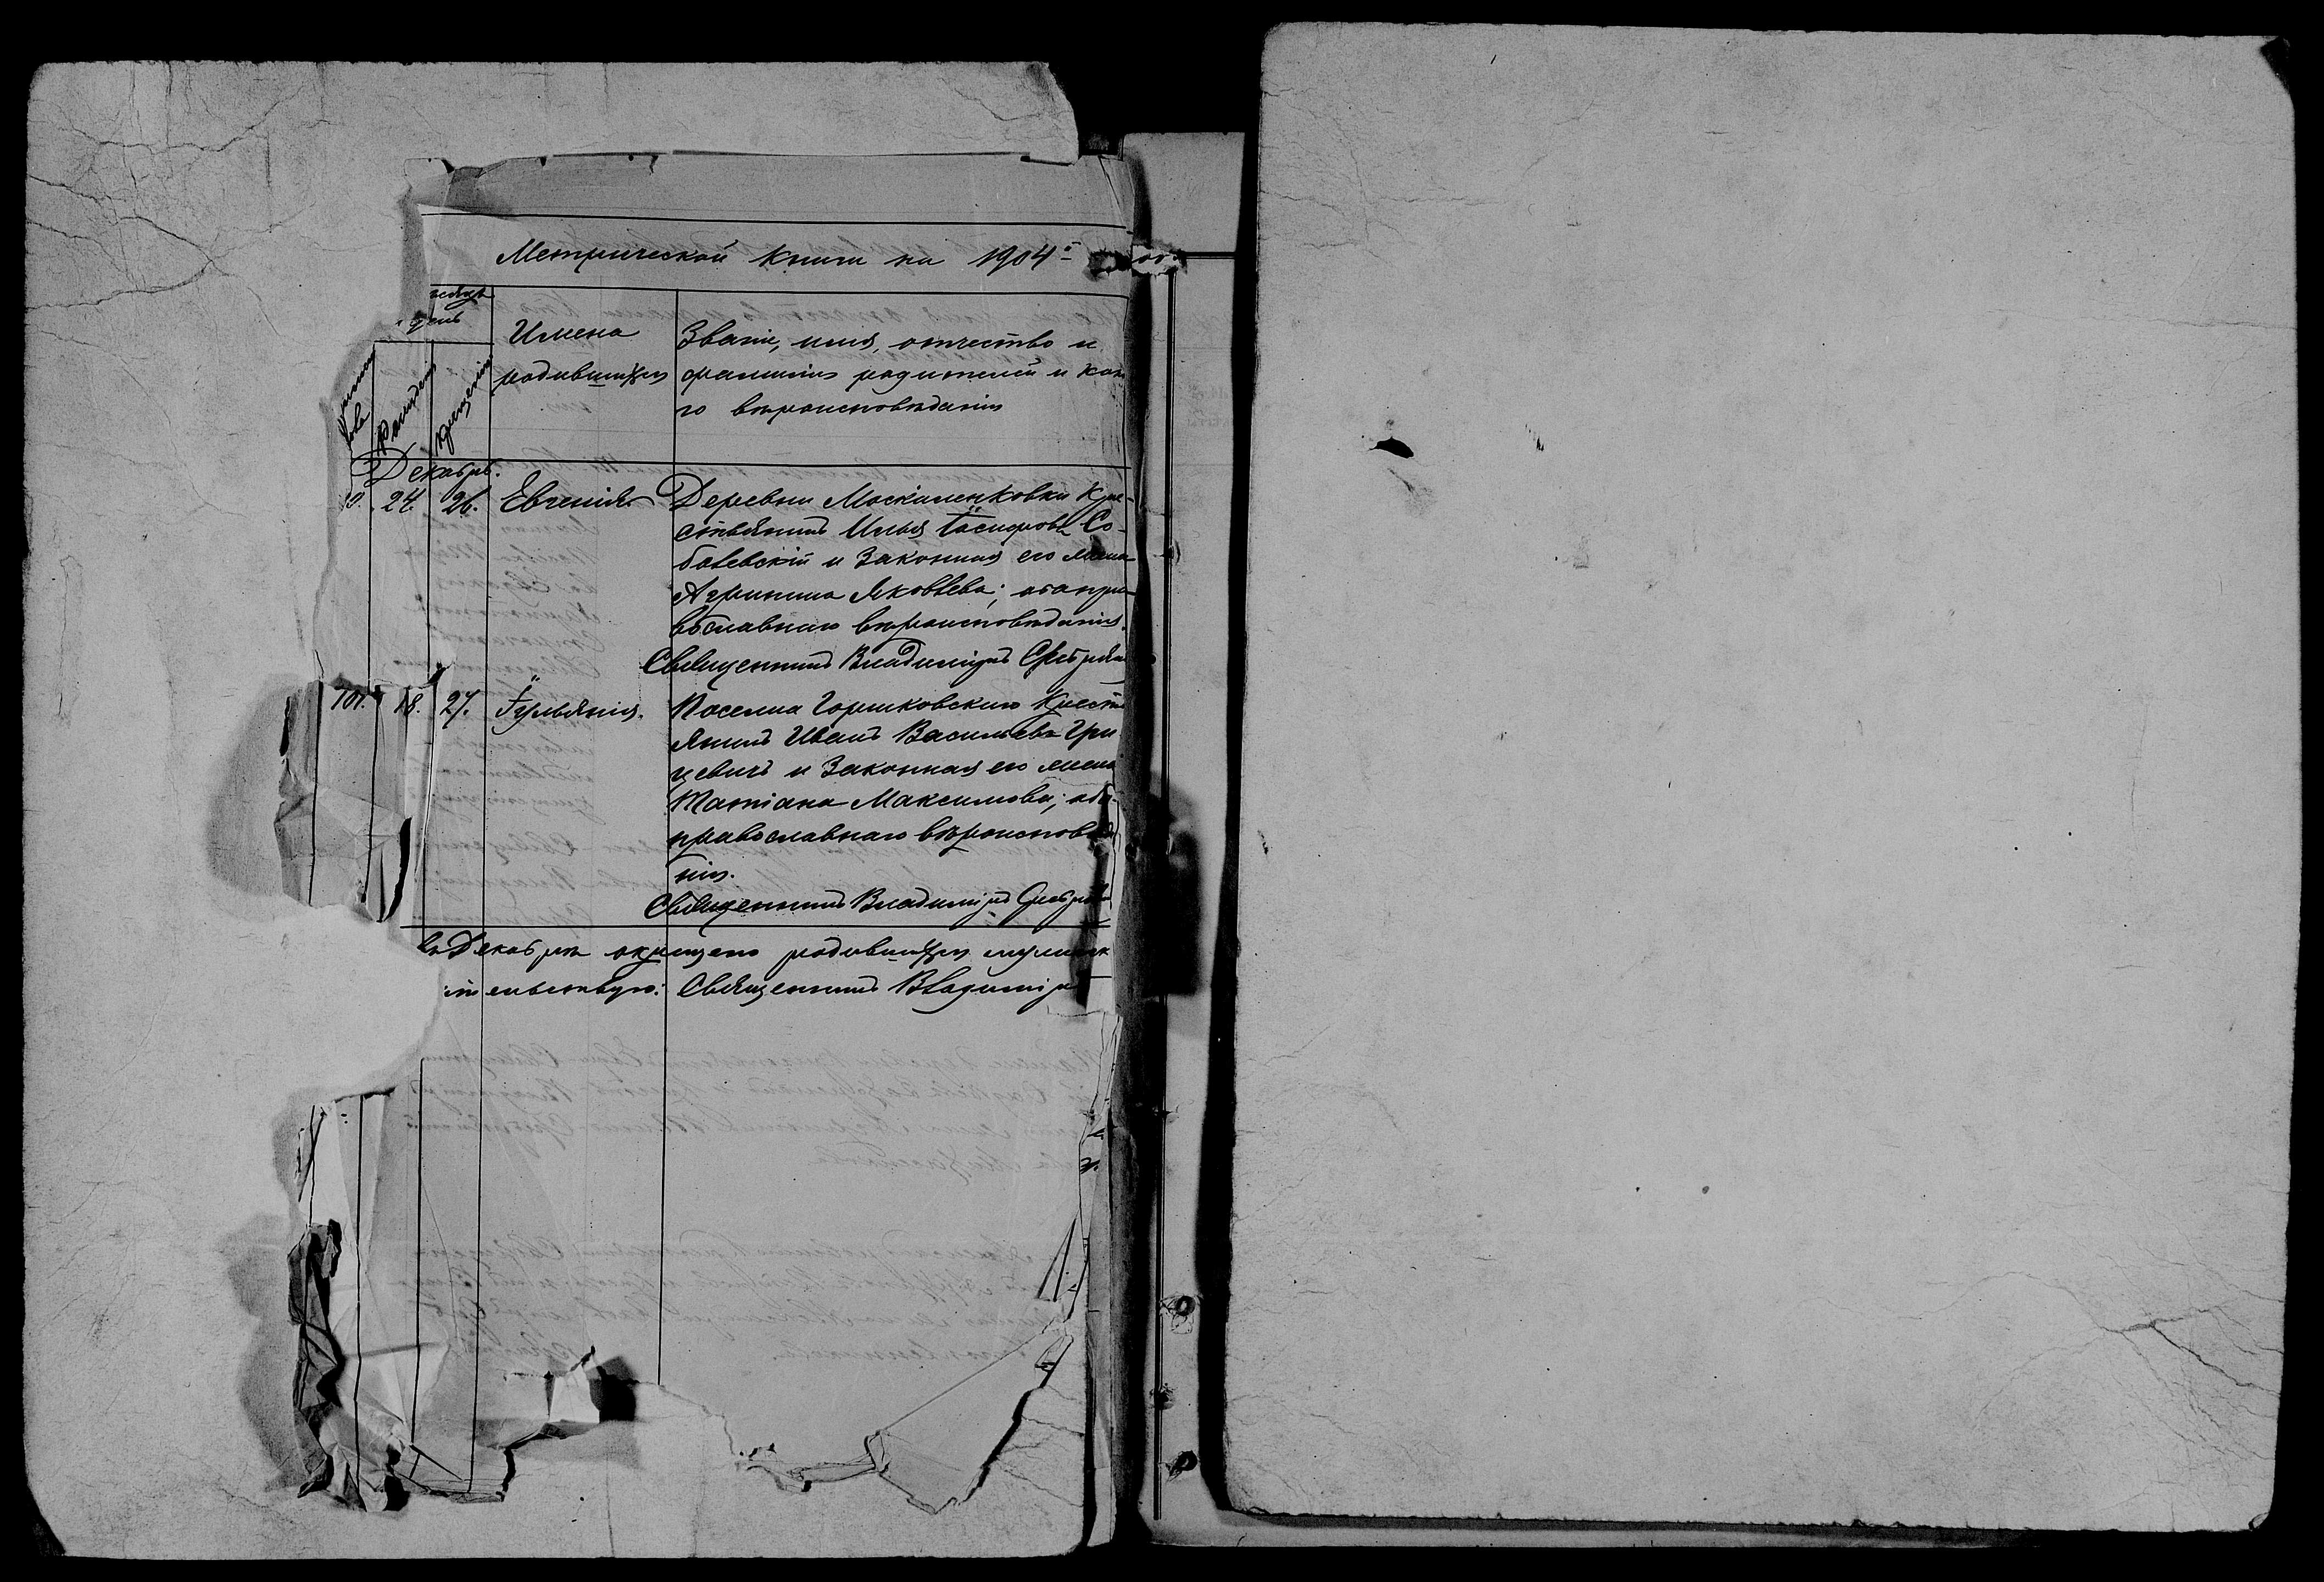 Метрической книги на 1904й
день
Имена
родившихся
Званіе, имя, отчество и
фамилія родителей и как
го вѣроисповѣданія
Рожденія
Крещенія
Декабрь.
24. 26. Евгенія
Деревни Москаленковки Кре-
стьянинъ Илья Іосифовъ Со-
болевскій и законная его жена
Агрипина Яковлева; оба пра-
вославнаго вѣроисповѣданія.
Священникъ Владиміръ
101. 18. 27. Іульянія.
Поселка Горшковскаго Кресть
янинъ Иванъ Васильевъ Гри
цевичъ и законная его жена
Татіана Максимова; оба
православнаго вѣроисповѣда
нія.
Священникъ Владиміръ
въ Декабрѣ окрещено родившихся мужеск
тельствую: Священникъ Владиміръ